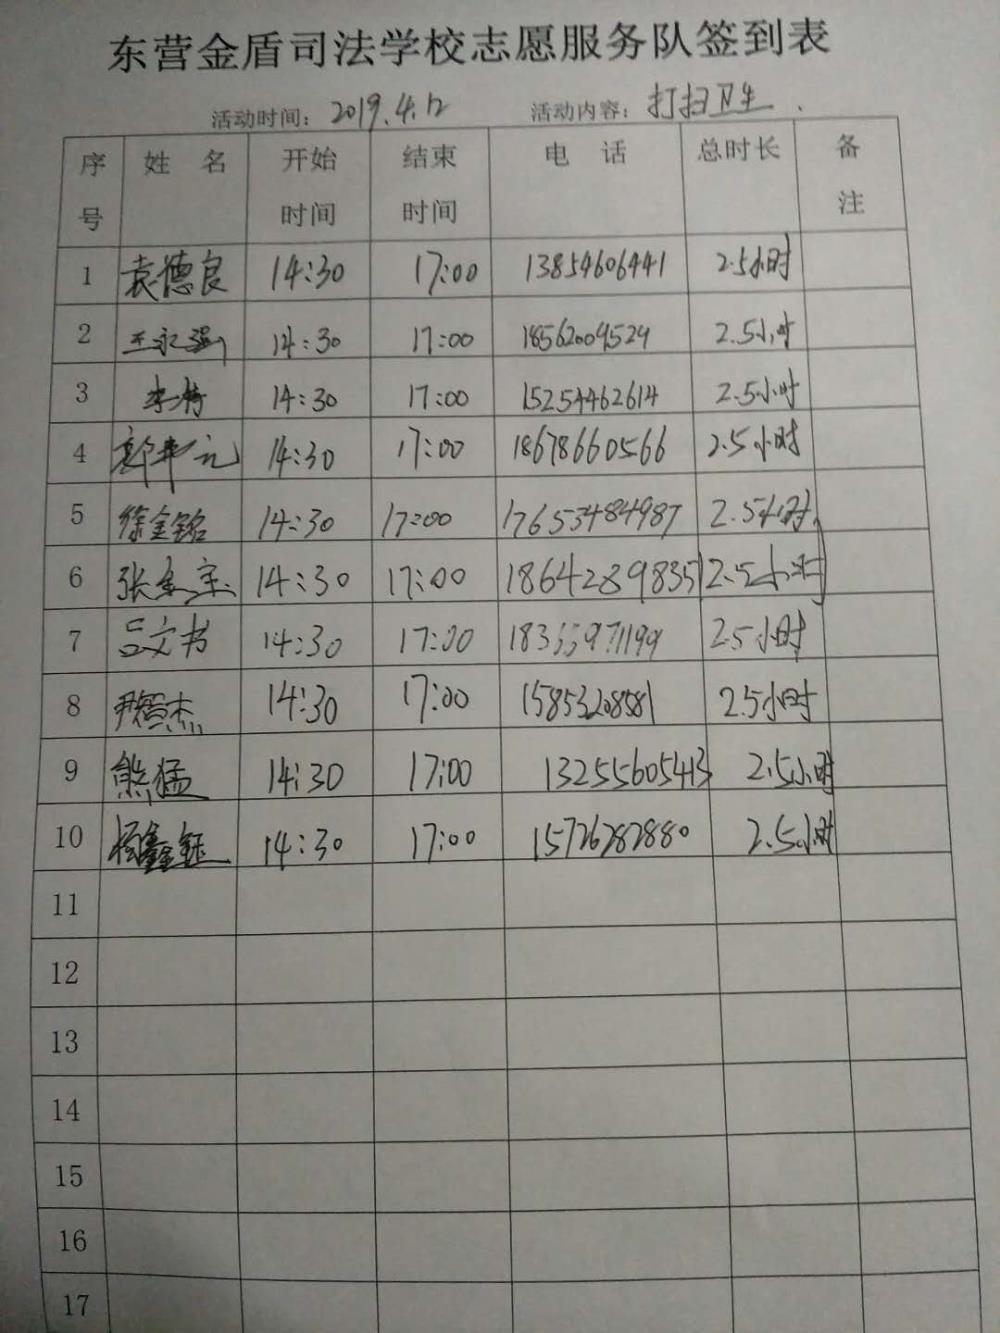 东营金盾司法学校志愿服务队签到表
活动时间：2019.4.12 活动内容：打扫卫生.
序号 姓名 开始时间 结束时间 电话 总时长 备注
1 袁德良 14:30 17:00 13854606441 2.5小时
2 王永强 14:30 17:00 18562004529 2.5小时
3 14:30 17:00 15254462614 2.5小时
4 14:30 17:00 18678660566 2.5小时
5 徐金铭 14:30 17:00 17653484987 2.5小时
6 张金宝 14:30 17:00 18642898351 2.5小时
7 吕文书 14:30 17:00 2.5小时
8 14:30 17:00 15853208581 2.5小时
9 熊猛 14:30 17:00 13255605413 2.5小时
10 杨鑫钰 14:30 17:00 15726282880 2.5小时
11
12
13
14
15
16
17